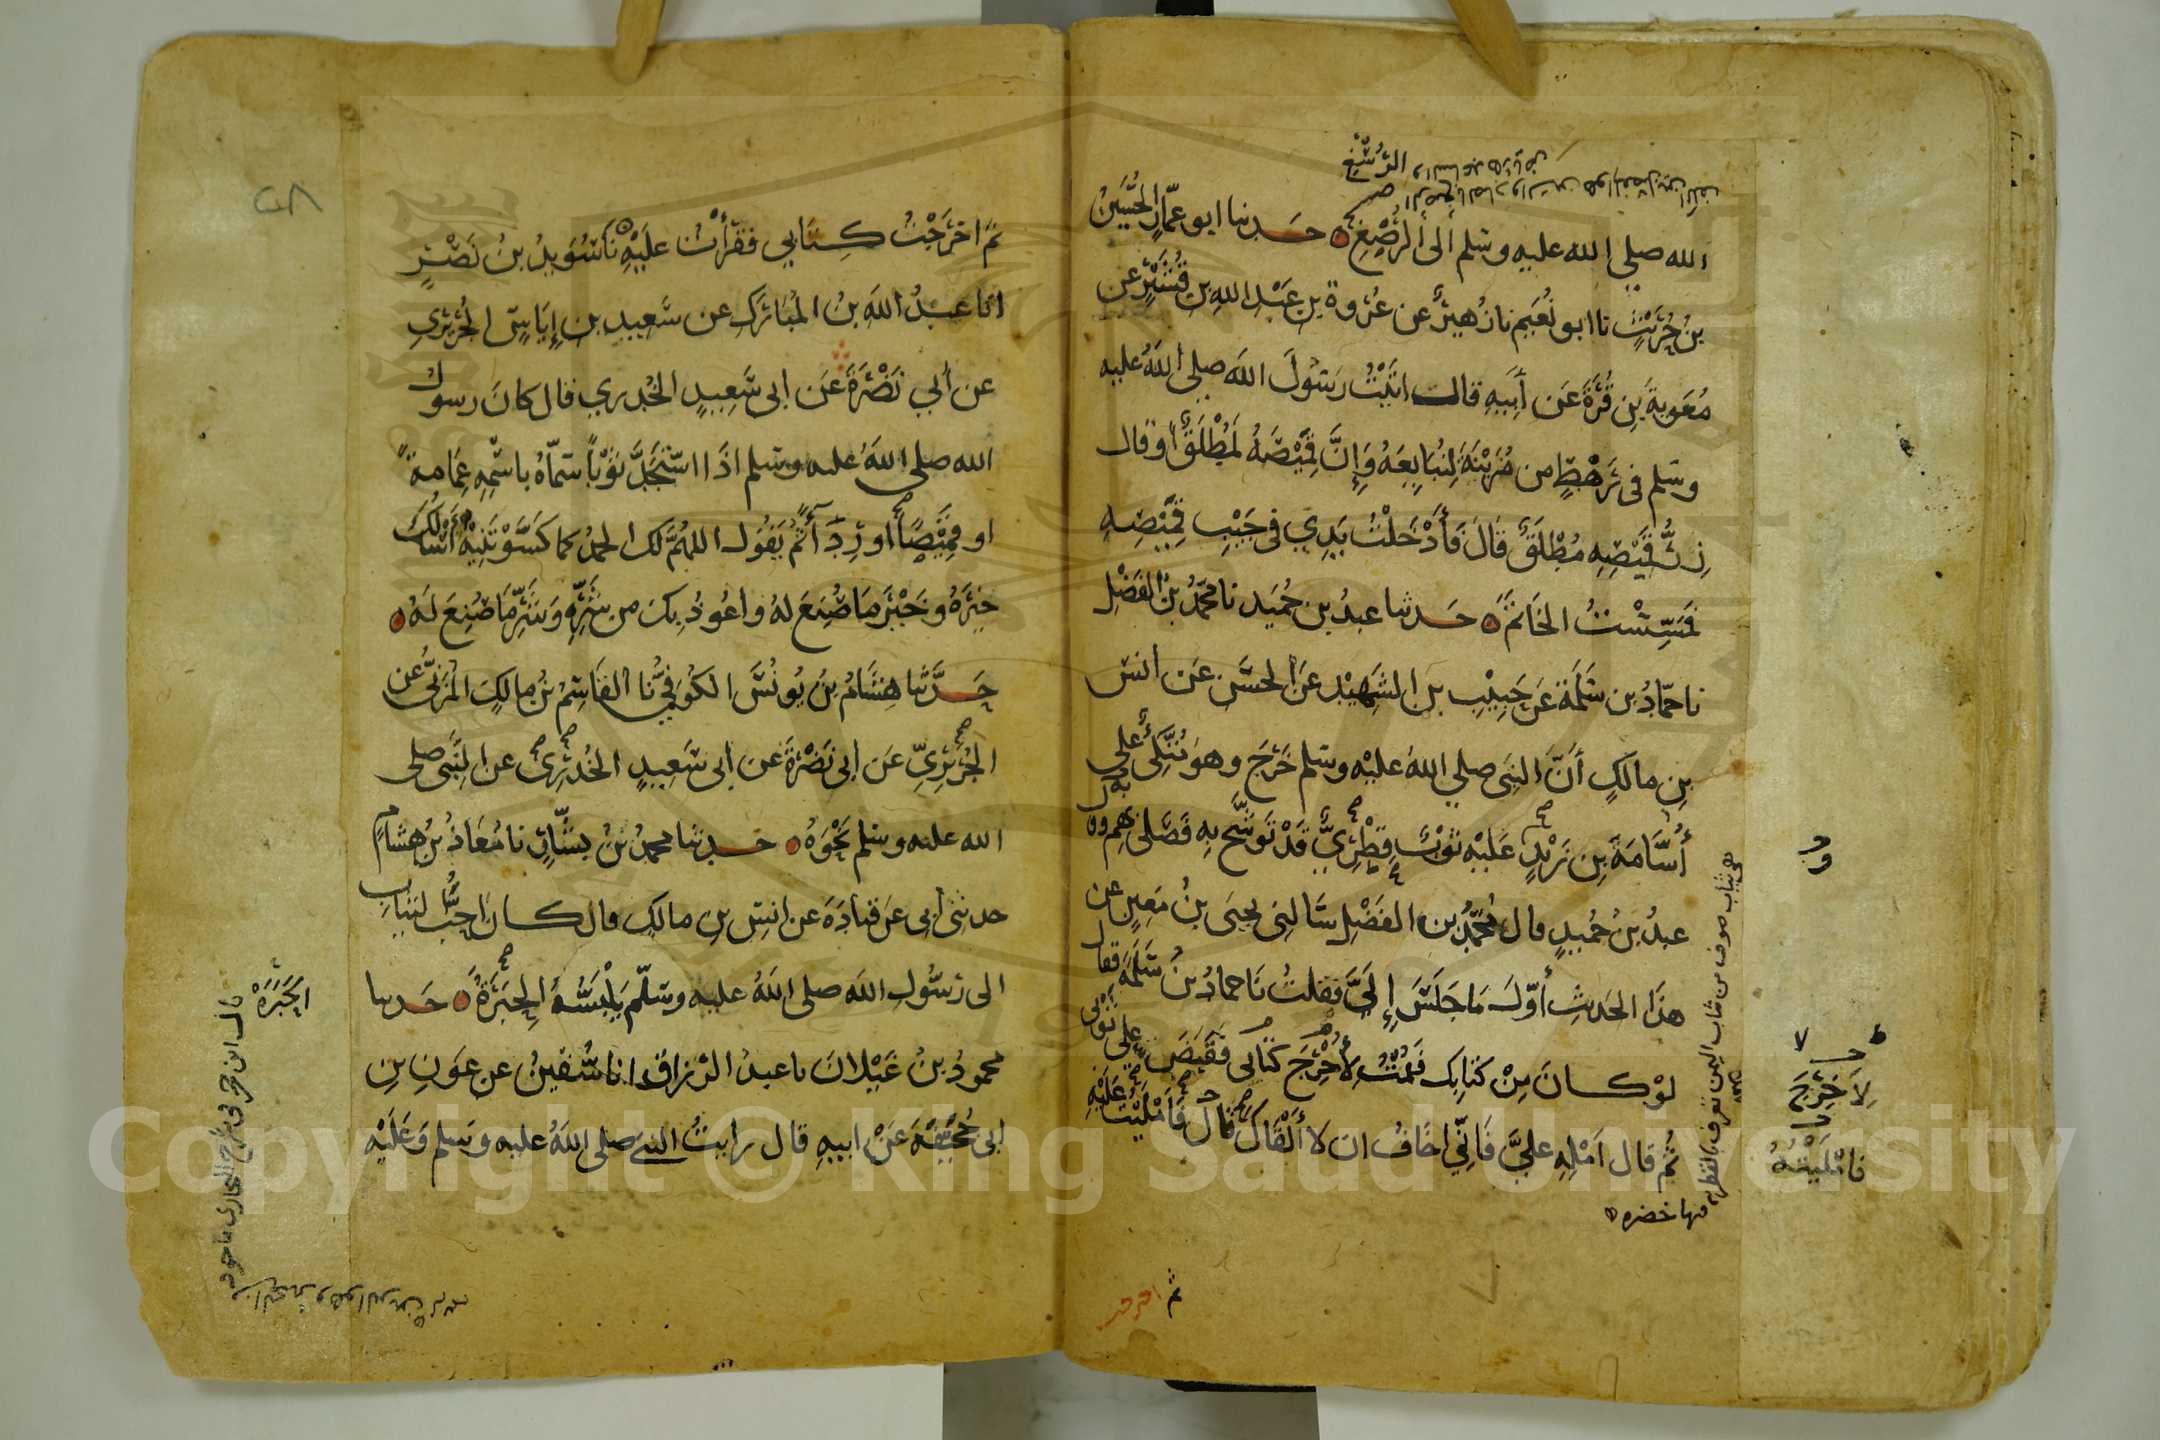 الله صلى الله عليه وسلم الى الرُّصْغِ حَدثنا ابو عمّار الحُسَين
بنُ حُرَيْثٍ نا ابو نُعَيم نا زُهيرٌ عن عُروة بن عَبْد الله بن قُشَيْرٍ عن
مُعٰوية بَنِ قُرَّةَ عَن أَبيهِ قال اتَيْتُ رَسُولَ الله صلى اللهُ عليه
وسلم فى رَهْطٍ من مُزَيْنَةَ لِنُبَايِعَهُ وَإِنَّ قَمِيْصَهُ لَمُطْلَقٌ او قال
زِرُّ قَمِيْصِهِ مُطْلَقٌ قَالَ فَأَدْخَلْتُ يَدِي فى جَيْبِ قَمِيْصِهِ
فَمَسِسْتُ الخَاتَمَ حَدثنا عبدُ بن حُمَيد نا محمّدُ بنُ الفَضْلِ
نا حمّادُ بن سَلَمَة عَن حَبِيْبِ بن الشهِيْد عَن الحسَن عَن انس
بنِ مالكٍ أنَّ النبيَ صلي اللهُ عليْه وسَلم خَرَجَ وهوَ يُتَّكِئُ على
أُسَامَةَ بنِ زَيْدٍ عَلَيْهِ ثوْبٌ قِطْرِيٌّ قَدْ تَوَشَّحَ بِهِ فَصَلى بهِم وقال
عبدُ بنُ حُمَيدٍ قال مُحَمَّدُ بن الفَضْلِ سَالني يحيَى بنُ مَعِينٍ عن
هذَا الحَديثِ أوّلَ مَا جَلَسَ إِلَيَّ فقلتُ نَا حمادُ بنُ سَلَمَة فقال
لوْ كانَ مِنْ كتابِكَ فَقُمْتُ لِأُخْرِجَ كتَابى فَقَبَضَ على ثَوْبى
ثُم قال اَمْلِهِ عليَّ فَانّي اخَافُ ان لا أَلْقَاكَ قال فَامْلَيْتُ عَلَيْهِ
لِاَخْرِجَ
فَامْلَيْتُهُ
ثم اخرجت
ثمَ اخرَجْتُ كِتَابي فقَرأْتُ علَيْهِ نا سُوَيدُ بنُ نَصْرٍ
انا عبدُ اللهِ بنُ المُبَارَك عن سَعِيدِ بن إيَاسٍ الجُرَيْرِي
عن أبي نَضْرَةَ عَن ابى سَعِيدٍ الخُدري قال كانَ رسول
الله صلى اللهُ عليه وسلم اذَا اسْتَجَدَّ ثوْباً سَمّاهُ باسْمِهِ عِمَامةً
او قَمِيْصًا أو رِدَآءً ثم يَقُول اللهُمَّ لك الحمدُ كما كَسَوْتَنِيْهِ أسْألُكَ
خَيْرَهُ وخَيْرَ مَا صُنِعَ لهُ واعُوذُ بِكَ من شَرِّهِ وَشَرِّ مَا صُنِعَ لهُ
حَدَّثنا هِشَامُ بنُ يُونُسَ الكُوفيُّ نا القَاسِمُ بنُ مالكٍ المُزَنيُّ عن
الجُرَيْرِيِّ عَن ابى نَضْرَةَ عَن ابى سَعِيدٍ الخُدْرِيِّ عن النَّبىِ صلى
الله عليه وسلم نَحْوَهُ حَدثنا محمدُ بنُ بَشَّارٍ نا مُعَاذُ بنُ هشامٍ
حدثنى أبى عَن قتادَةَ عن انسِ بنِ مالكٍ قال كانَ احَبُّ الثيَابِ
الى رَسُولِ الله صلى اللهُ عليه وسَلّم يَلْبَسُهُ الحِبَرَةُ حَدثنا
محمودُ بنُ غَيْلانَ نا عبدُ الرَّزاق انا سُفْيٰنُ عن عَوْنِ بنِ
ابى جُحَيْفَةَ عَنْ ابيهِ قال رايتُ النبي صلى اللهُ عليه وسَلم وَعَلَيْهِ
الحِبَرَةَ
Copyright © King Saud University